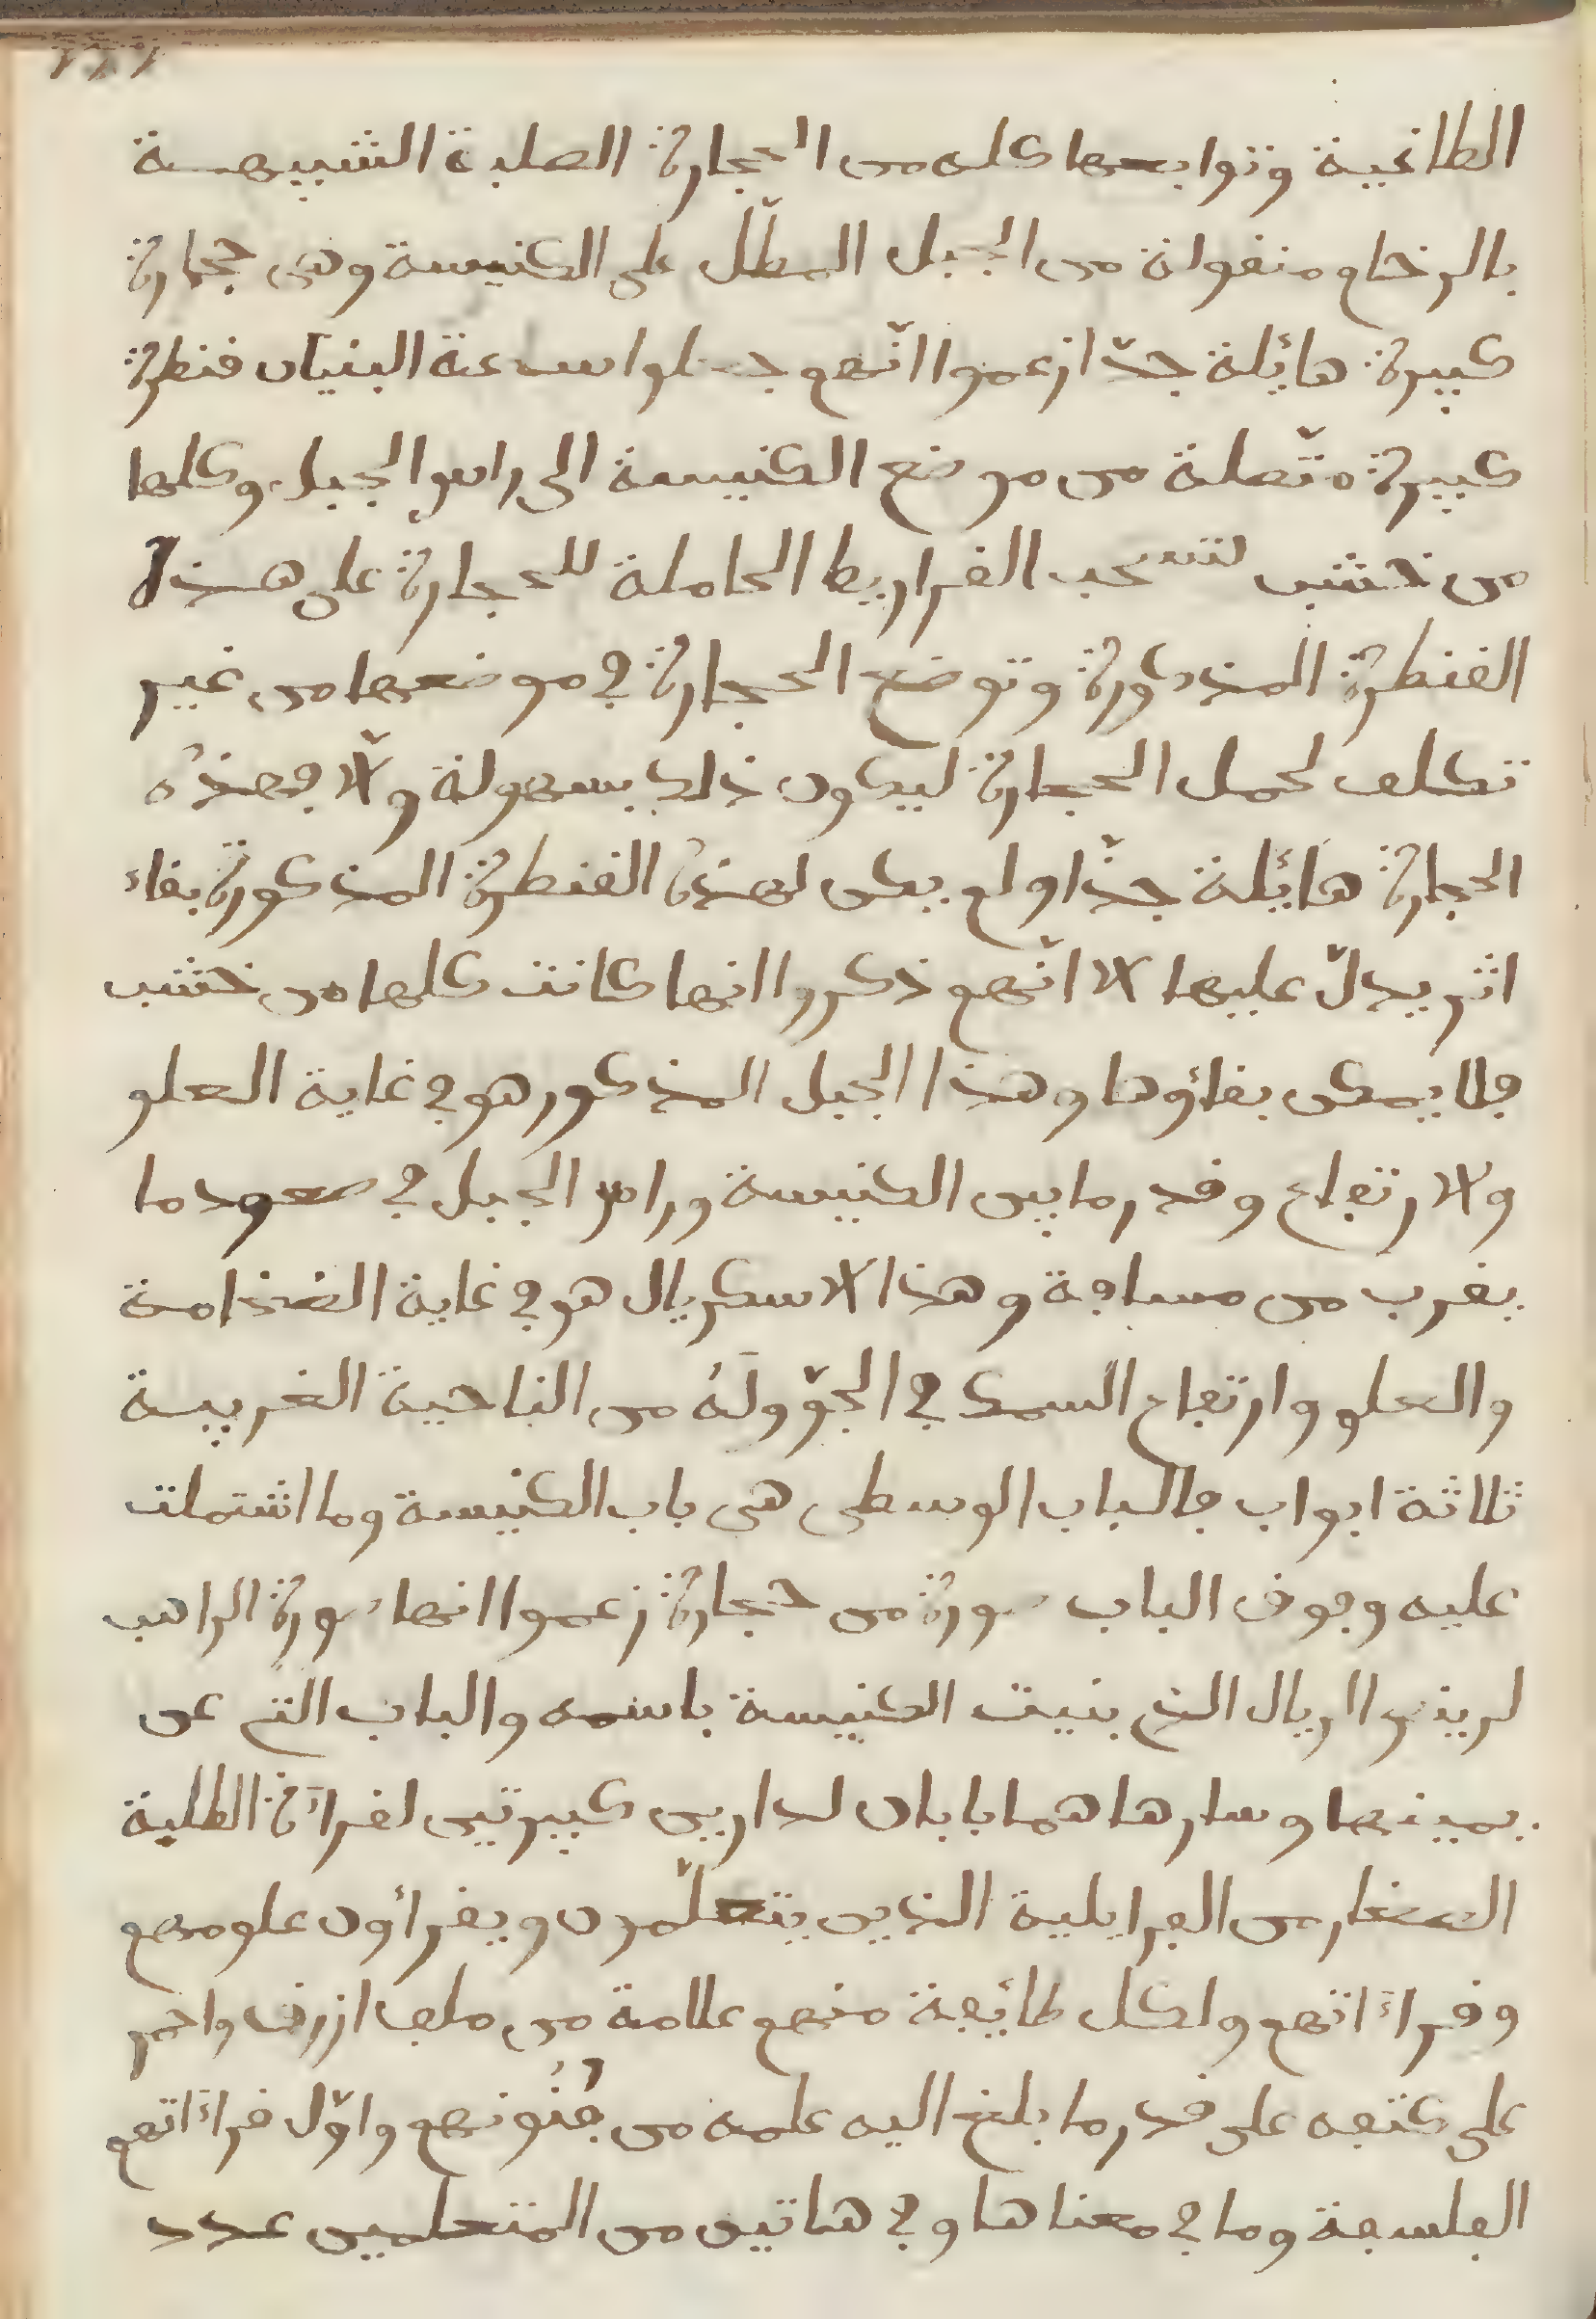 الطاغية وتوابعها كله من الحجارة الصلبة الشبيهة
بالرخام منقولة من الجبل المطّل على الكنيسة وهى حجارة
كبيرة هائلة جدّا زعموا انّهم جعلوا ساعة البنيان قنطرة
كبيرة متّصلة من موضع الكنيسة الى راس الجبل وكلها
من خشب لتسحب القراريط الحاملة للحجارة على هذه
القنطرة المذكورة وتوضع الحجارة في موضعها من غير
تكلف لحمل الحجارة ليكون ذلك بسهولة والّا فهذه
الحجارة هائلة جدّا ولم يكن لهذه القنطرة المذكورة بقاء
اثر يدلّ عليها الا انّهم ذكروا انها كانت كلها من خشب
فلا يمكن بقاؤها وهذا الجبل المذكور هو في غاية العلو
والارتفاع وقدر ما بين الكنيسة وراس الجبل في صعود ما
يقرب من مسافة وهذا الاسكريال هو في غاية الضخامة
والعلو وارتفاع السمك في الجوّ وله من الناحية الغربية
ثلاثة ابواب فالباب الوسطى هى باب الكنيسة وما اشتملت
عليه وفوق الباب صورة من حجارة زعموا انها صورة الراهب
لرينس الريال الذي بنيت الكنيسة باسمه والباب التي عن
يمينها وسارها هما بابان لدارين كبيرتين لقراءة الطلبة
الصغار من الفرايلية الذين يتعلّمون ويقرأون علومهم
وقراءاتهم ولكل طائفة منهم علامة من ملف ازرق واحمر
على كتفه على قدر ما بلغ اليه علمه من فُنُونهم واوّل قراءاتهم
الفلسفة وما في معناها وفي هاتين من المتعلمين عدد